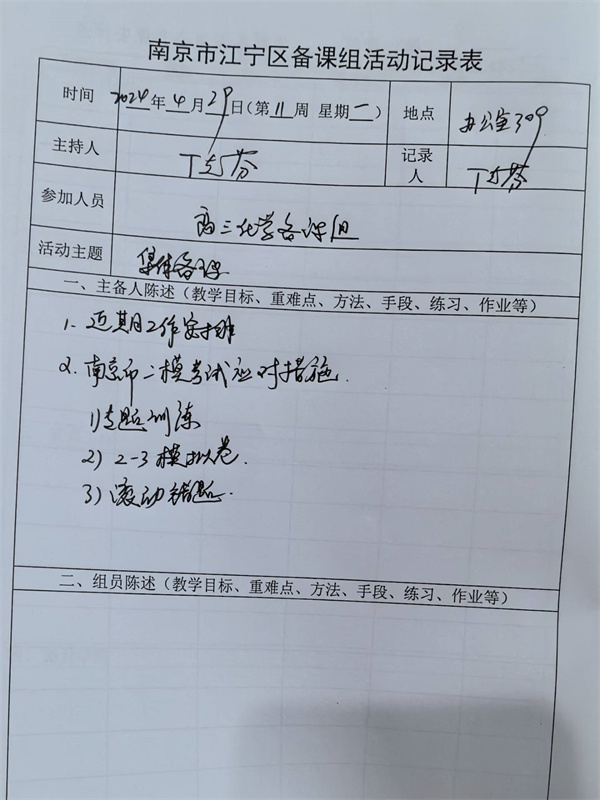 南京市江宁区备课组活动记录表
时间 2024年4月29日(第11周 星期一) 地点 办公室309
主持人 丁 芬 记录人 丁 芬
参加人员 高三化学备课组
活动主题 集体备课
一、主备人陈述(教学目标、重难点、方法、手段、练习、作业等)
1. 近期工作安排
2. 南京市二模考试应对措施.
1)专题训练
2) 2-3模拟卷.
3) 滚动错题.
二、组员陈述(教学目标、重难点、方法、手段、练习、作业等)